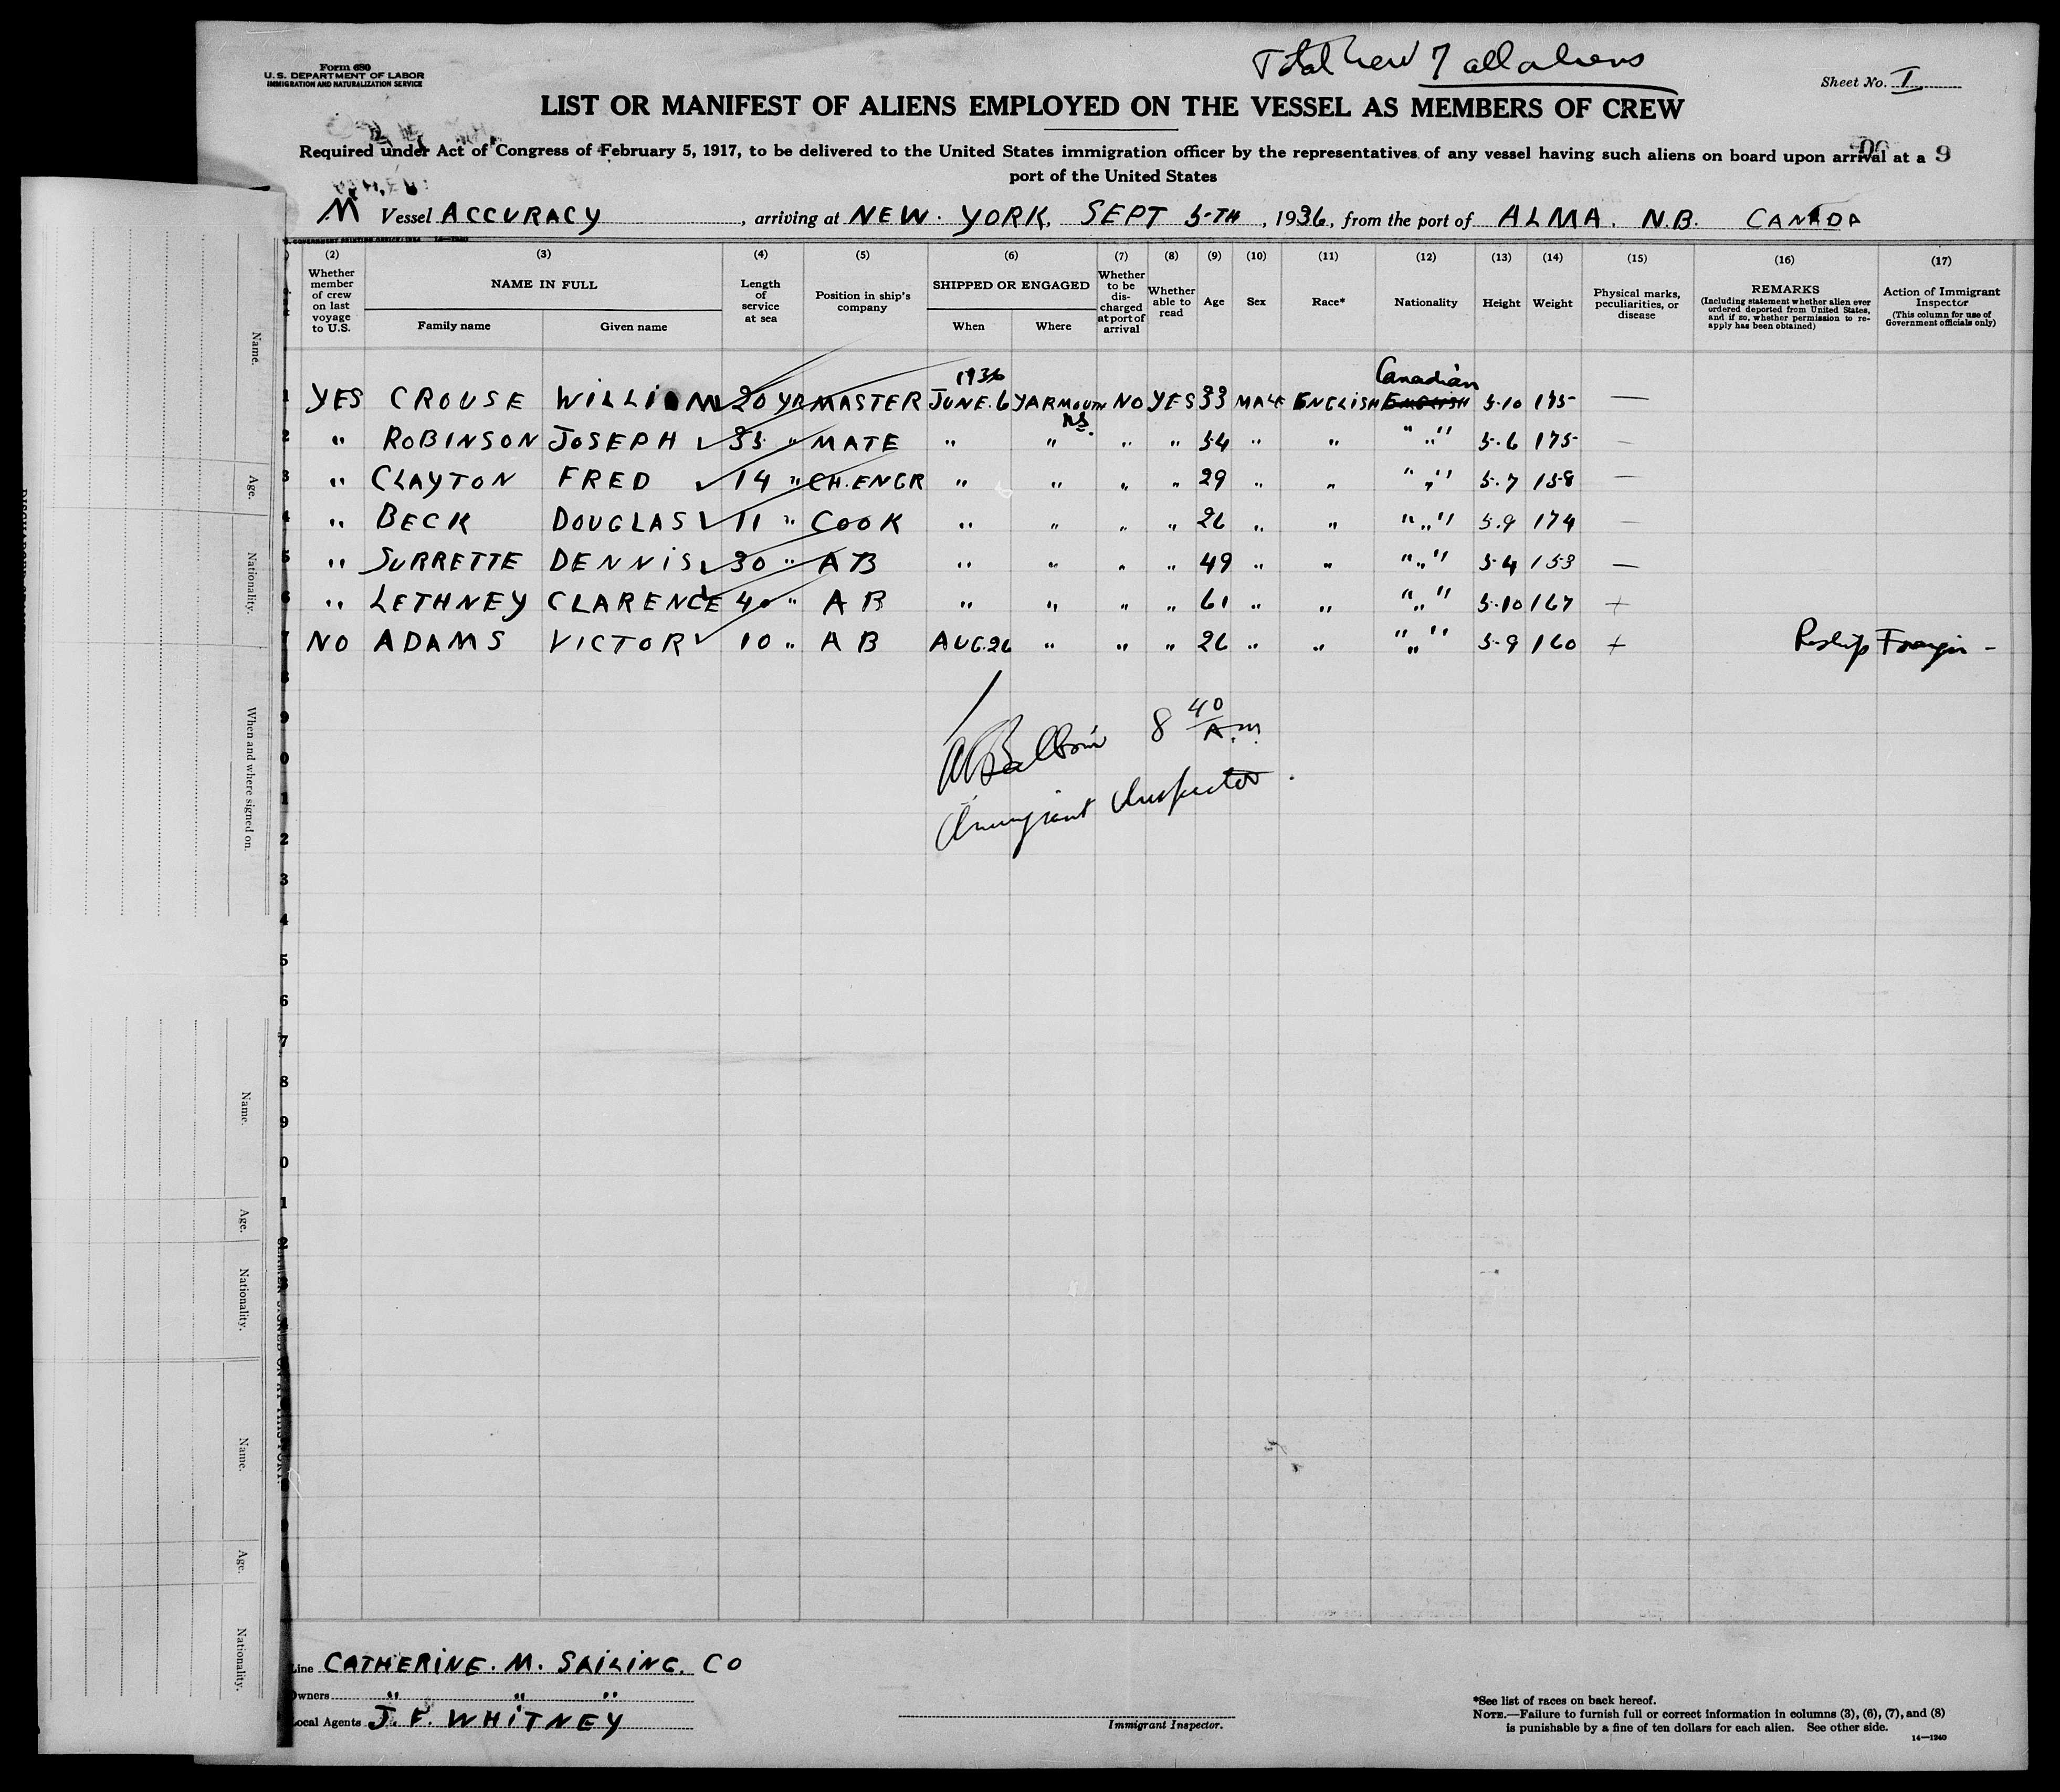 Total Crew 7 all aliens
Form 680
U. S. DEPARTMENT OF LABOR
IMMIGRATION AND NATURALIZATION SERVICE
Sheet No. I
LIST OR MANIFEST OF ALIENS EMPLOYED ON THE VESSEL AS MEMBERS OF CREW
Required under Act of Congress of February 5, 1917, to be delivered to the United States immigration officer by the representatives of any vessel having such aliens on board upon arrival at a 9
port of the United States
M Vessel ACCURACY, arriving at NEW. YORK, SEPT 5-TH, 1936, from the port of ALMA. N.B. CANADA
(2) (3) (4) (5) (6) (7) (8) (9) (10) (11) (12) (13) (14) (15) (16) (17)
Whether member of crew on last voyage to U.S. NAME IN FULL Family name Given name Length of service at sea Position in ship's company SHIPPED OR ENGAGED When Where Whether to be discharged at port of arrival Whether able to read Age Sex Race* Nationality Height Weight Physical marks, peculiarities, or disease REMARKS (Including statement whether alien ever ordered deported from United States, and if so, whether permission to reapply has been obtained) Action of Immigrant Inspector (This column for use of Government officials only)
1936 Canadian
1 YES CROUSE WILLIAM 20 YR MASTER JUNE.6 YARMOUTH NS. NO YES 33 MALE ENGLISH ENGLISH 5-10 175 —
2 " ROBINSON JOSEPH 35 " MATE " " " " 54 " " " 5-6 175 —
3 " CLAYTON FRED 14 " CH.ENGR " " " " 29 " " " 5-7 158 —
4 " BECK DOUGLAS 11 " COOK " " " " 26 " " " 5-9 174 —
5 " SURRETTE DENNIS 30 " AB " " " " 49 " " " 5-4 153 —
6 " LETHNEY CLARENCE 40 " AB " " " " 61 " " " 5-10 167 +
7 NO ADAMS VICTOR 10 " AB AUG.26 " " " 26 " " " 5-9 160 + Reship Foreign -
8
9
0
1
2
3
4
5
6
7
8
9
0
1
2
8 40 A.m.
Immigrant Inspector.
Name.
Age.
Nationality.
When and where signed on.
Name.
Age.
Nationality.
Name.
Age.
Nationality.
Line CATHERINE. M. SAILING. CO
Owners " " "
Local Agents J. F. WHITNEY
Immigrant Inspector.
*See list of races on back hereof.
NOTE.—Failure to furnish full or correct information in columns (3), (6), (7), and (8)
is punishable by a fine of ten dollars for each alien. See other side.
14—1240